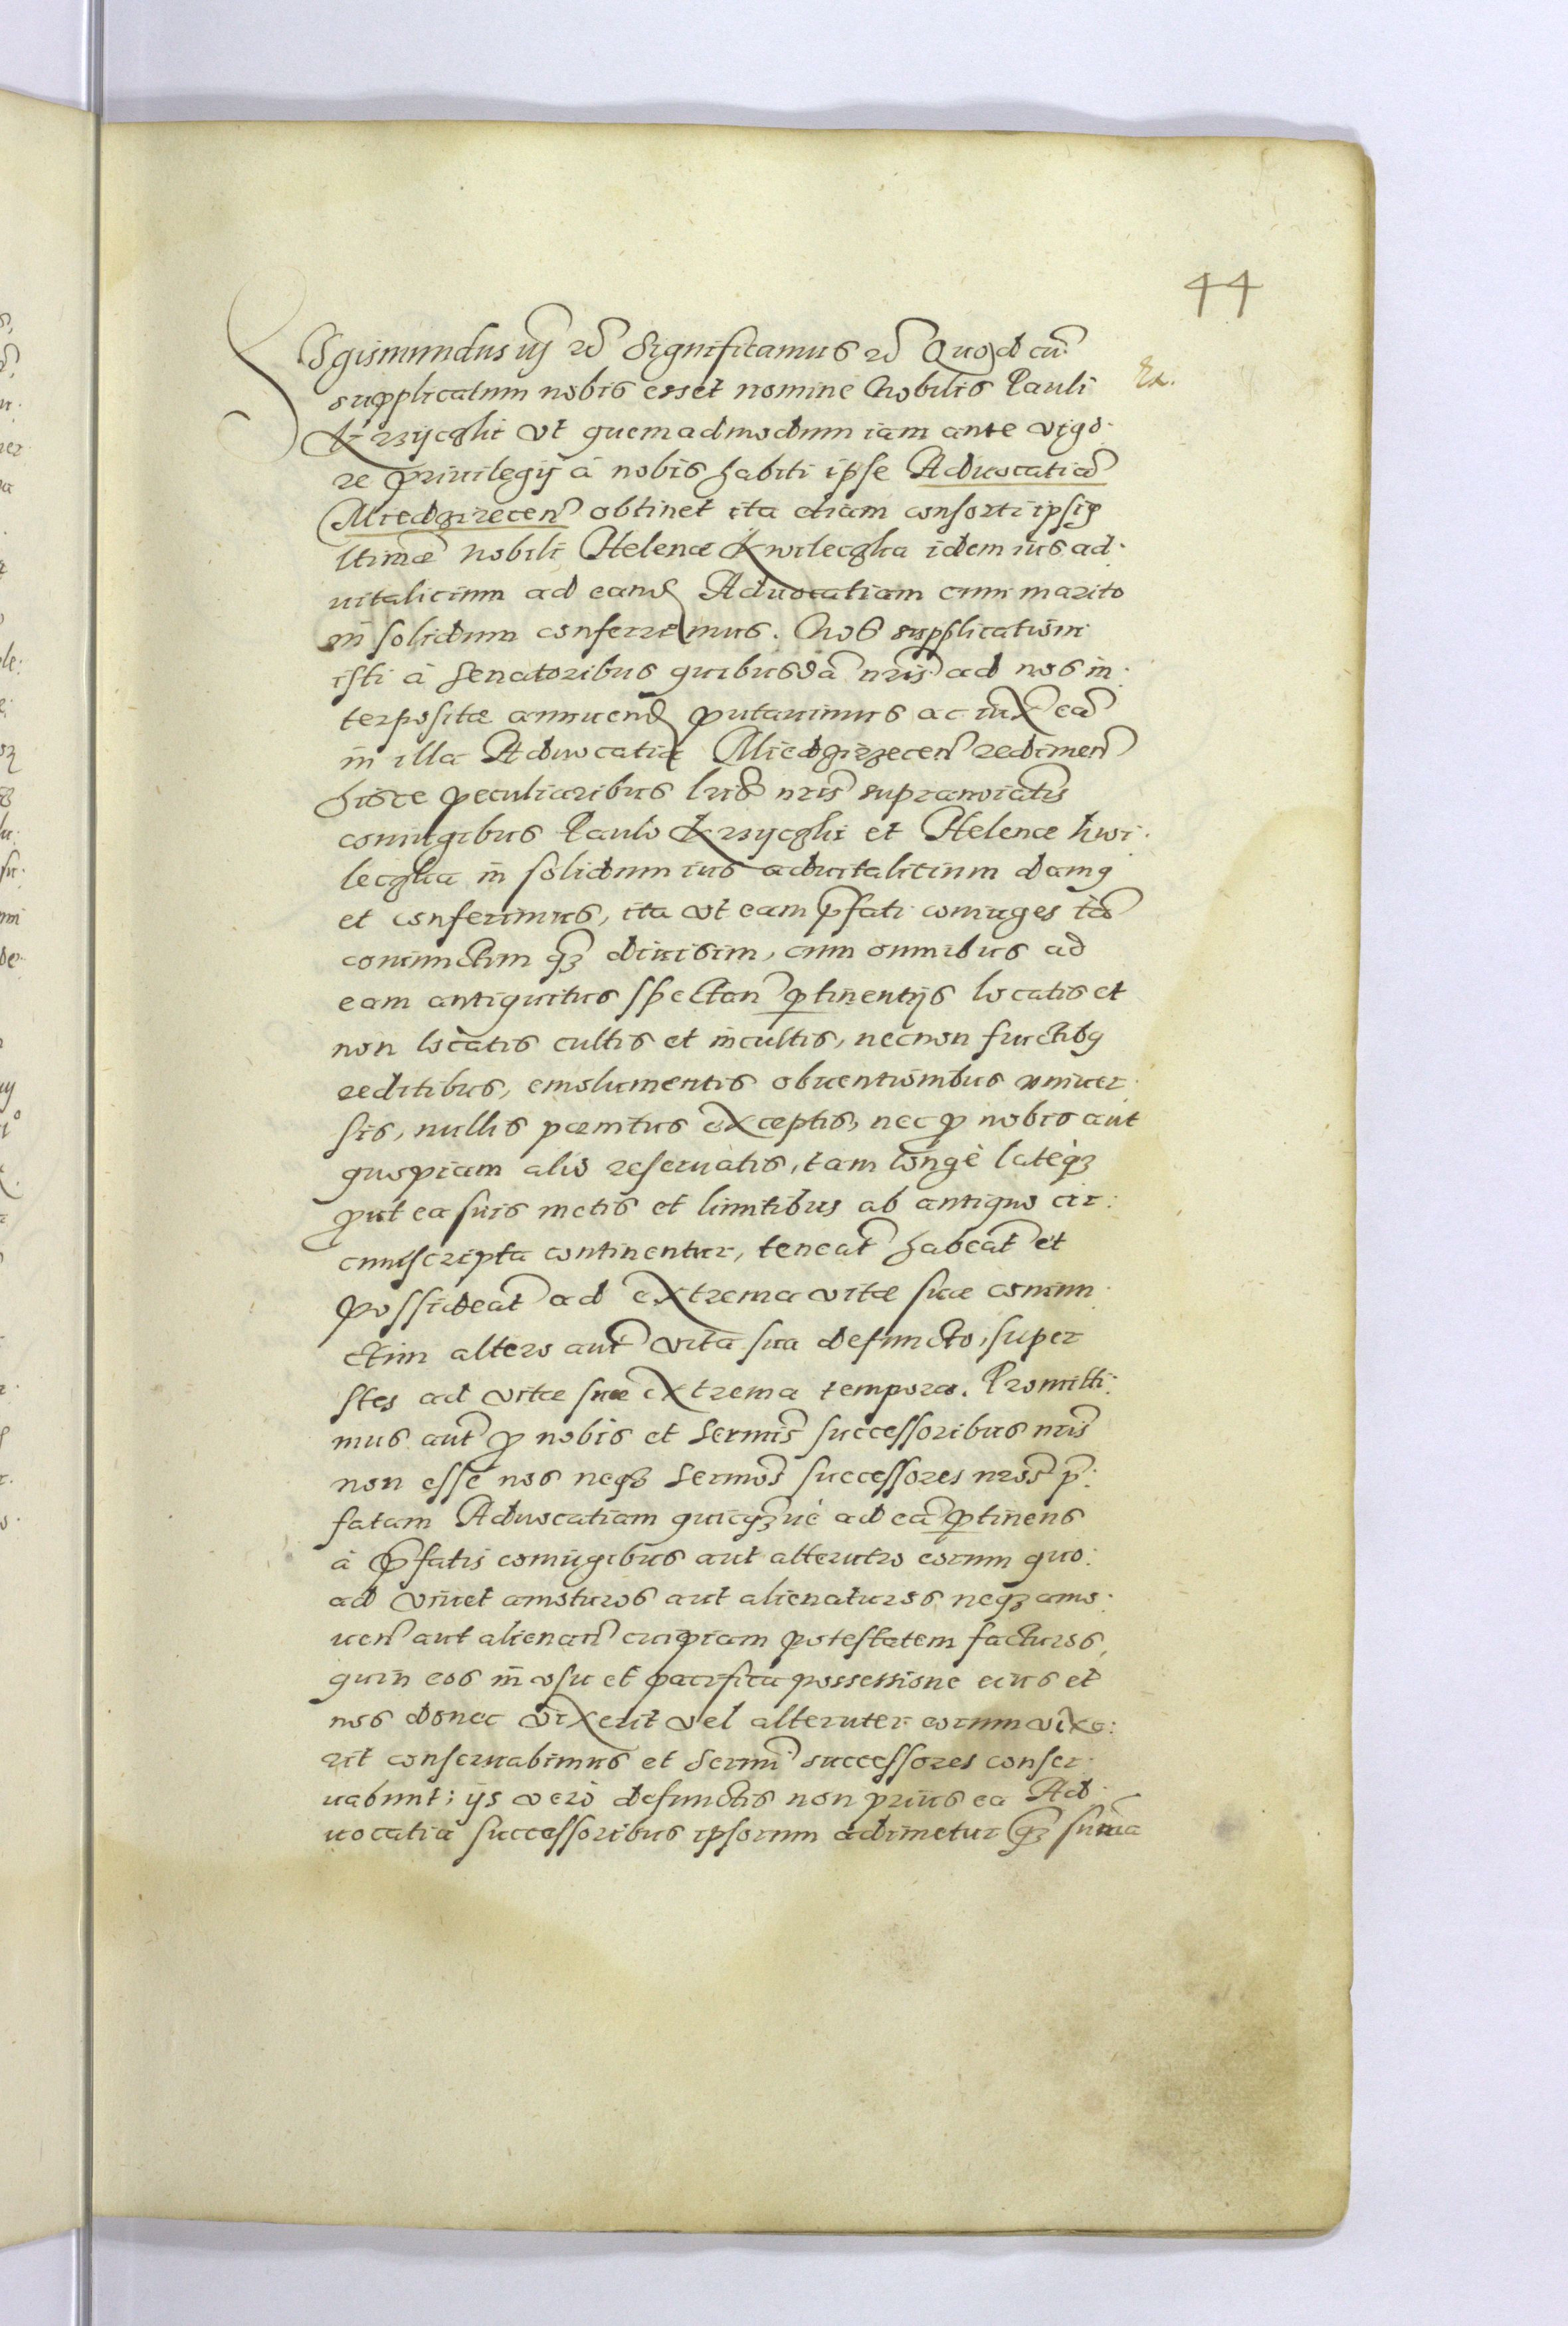 44
Sigismundus iij rc Significamus rc Quod cũ
supplicatum nobis esset nomine Nobilis Pauli
Ex.
Krzyczki vt quemadmodum iam ante vigo.
re priuilegij à nobis habiti ipse Aduocatiã
Miedzirecen̄ obtinet ita etiam consorti ipsiꝰ
ltimæ nobili Helenæ Kwileczka idem ius ad.
uitalicium ad eand Aduocatiam cum marito
in solidum conferremus. Nos supplicationi
isti à senatoribus quibusdã nr̃is ad nos in.
terpositæ annuend putauimus ac iux eã
in illa Aduocatia Miedzirzecen̄ redimen̄
hisce peculiaribus lrĩs nr̃is supranoĩatis
coniugibus Paulo Krzyczki et Helenæ Kwi.
leczka in solidum ius aduitalitium damꝰ
et conferimus, ita vt eam p̃fati coniuges tã
coniunctim qꝫ diuisim, cum omnibus ad
eam antiquitus spectan̄ ꝑtinentijs locatis et
non locatis cultis et incultis, necnon fructibꝰ
reditibus, emolumentis obuentionibus vniuer.
sis, nullis pænitus exceptis, nec ꝓ nobis aut
quopiam alio reseruatis, tam longè lateqꝫ
ꝓut ea suis metis et limitibus ab antiquo cir:
cumscripta continentur, teneat̃ habeat̃ et
possideat̃ ad extrema vitæ suæ coniun.
ctim altero aut̃ vita sua defuncto, super
stes ad vitæ suæ extrema tempora. Promitti:
mus aut̃ ꝓ nobis et sermis̃ successoribus nr̃is
non esse nos neqꝫ sermos̃ successores nr̃os p̃:
fatam Aduocatiam quicqꝫue ad eã ꝑtinens
à p̃fatis coniugibus aut alterutro eorum quo:
ad viuet amoturos aut alienaturos neqꝫ amo.
uen̄ aut alienan̄ cuipiam potestatem facturos,
quin eos in vsu et pacifica possessione eius et
nos donec vixerit vel alteruter eorum vixe:
rit conseruabimus et sermi successores conser.
uabunt; ijs vero defunctis non prius ea Ad.
uocatia successoribus ipsorum adimetur qꝫ suma